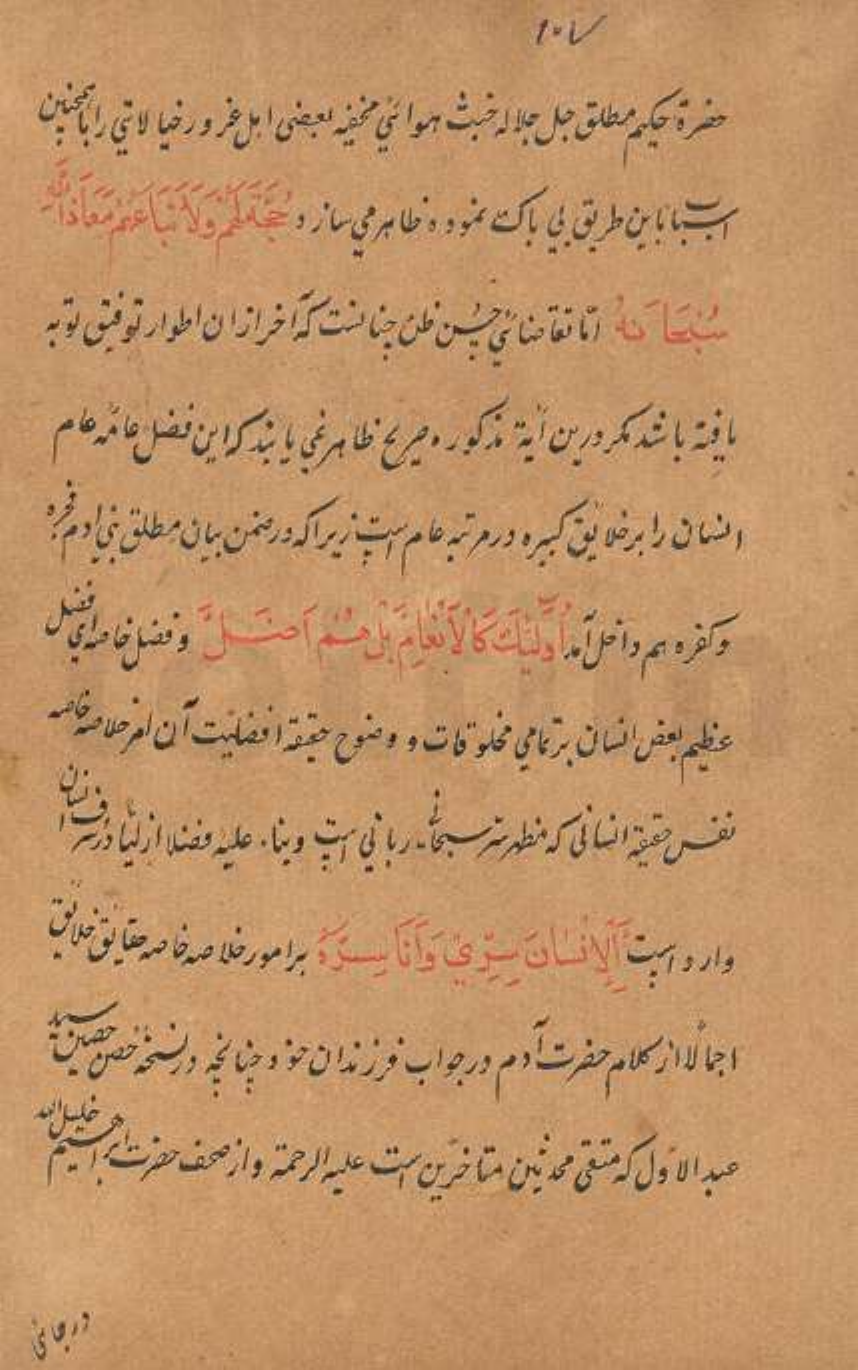 حضرة حکیم مطلق جل جلاله خبث هوائی مخفیه بعضی اهل غرور خیالاتی را باینچنین
اسباب باین طریق بی باک نموده ظاهر می سازد حُجَّةً لَهُمْ وَلِأَتْبَاعِهِمْ مَعَاذَ اللّٰهِ
سُبْحَانَهُ امّا تقاضائی حُسن ظن چنانست که آخر ازان اطوار توفیق توبه
یافته باشد مگر درین آیة مذکوره صریح ظاهر نمی یابند که این فضل عامّه عام
انسان را بر خلایق کبیره در مرتبه عام است زیرا که در ضمن بیان مطلق بنی آدم فجره
و کفره هم داخل آمد أُولٰئِكَ كَالْأَنْعَامِ بَلْ هُمْ أَضَلُّ و فضل خاصه ای فضل
عظیم بعض انسان بر تمامی مخلوقات و وضوح حقیقة افضلیت آن امر خلاصه خاصه
نفس حقیقة انسانی که مظهر سّر سبحانی ربانی است و بناء علیه فضلا ازلیّا در شرف انسان
وارد است اَلْاِنْسَانُ سِرِّيْ وَأَنَا سِرُّهُ بر امور خلاصه خاصه حقایق خلایق
اجمالًا از کلام حضرت آدم در جواب فرزندان خود چنانچه در نسخهٔ حصن حصین سید
عبد الاول که متقی محدثین متاخرین است علیه الرحمة و از صحف حضرت ابراهیم خلیل الله